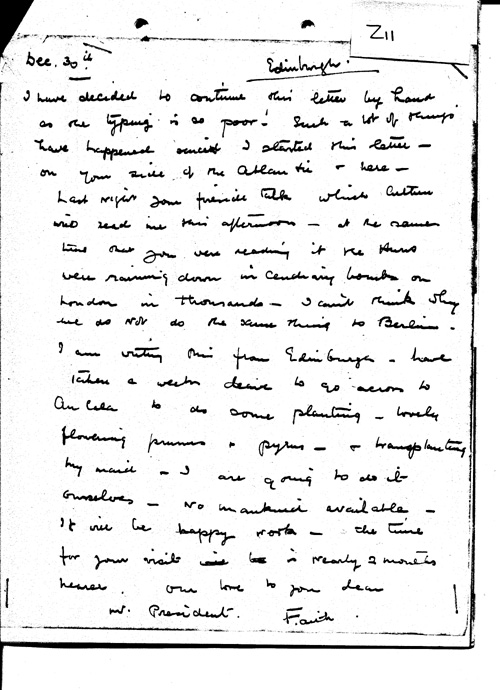 Z11
Dec. 30th Edinburgh.
I have decided to continue this letter by hand
as the typing is so poor! Such a lot of things
have happened since I started this letter -
on your side of the Atlantic & here -
Last night your fireside talk which
will read me this afternoon - at the same
time that you were reading it the Huns
were raining down incendiary bombs on
London in thousands - I can't think why
we do not do the same thing to Berlin.
I am writing this from Edinburgh - have
taken a week's leave to go across to
to do some planting - lovely
flowering prunus & pyrus - & transplanting
my maid - I are going to do it
ourselves - no mankind available -
It will be happy work - the time
for your visit is nearly 2 months
nearer. Our love to you dear
Mr. President. Faith